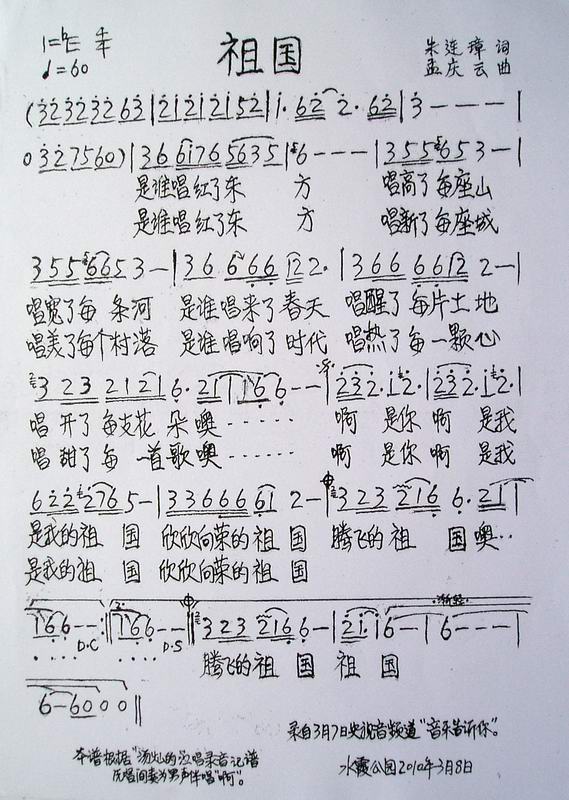 1=♭E 4/4
♩=60
祖国
朱连璋 词
孟庆云 曲
(323232 63|212121 52|1· 62 2· 62|3 - - - |
0 327560)|36 6176 5635|6 - - - |355 565 3 - |
是谁唱红了东 方 唱高了每座山
是谁唱红了东 方 唱新了每座城
355 6653 - |36 666 122·|366 6612 2 - |
唱宽了每 条河 是谁唱来了春天 唱醒了每片土地
唱美了每个村落 是谁唱响了时代 唱热了每一颗心
323 2121 6· 211 166 - - |232·12·|232·12·|
唱开了每支花 朵噢······ 啊 是你啊 是我
唱甜了每 一首歌噢······ 啊 是你啊 是我
622 2765 - |33666 61 2 - |323 216 6· 21|
是我的祖 国 欣欣向荣的祖国 腾飞的祖 国噢··
是我的祖 国 欣欣向荣的祖国
166 - - :|2. 166 - - ||323 2166 - |21· 16 - |6 - - - |
D.C D.S 渐轻
···· ···· 腾飞的祖 国 祖 国
6 - 6000||
录自3月7日央视音频道"音乐告诉你"。
本谱根据"汤灿的演唱录音记谱
水霞公园2010年3月8日